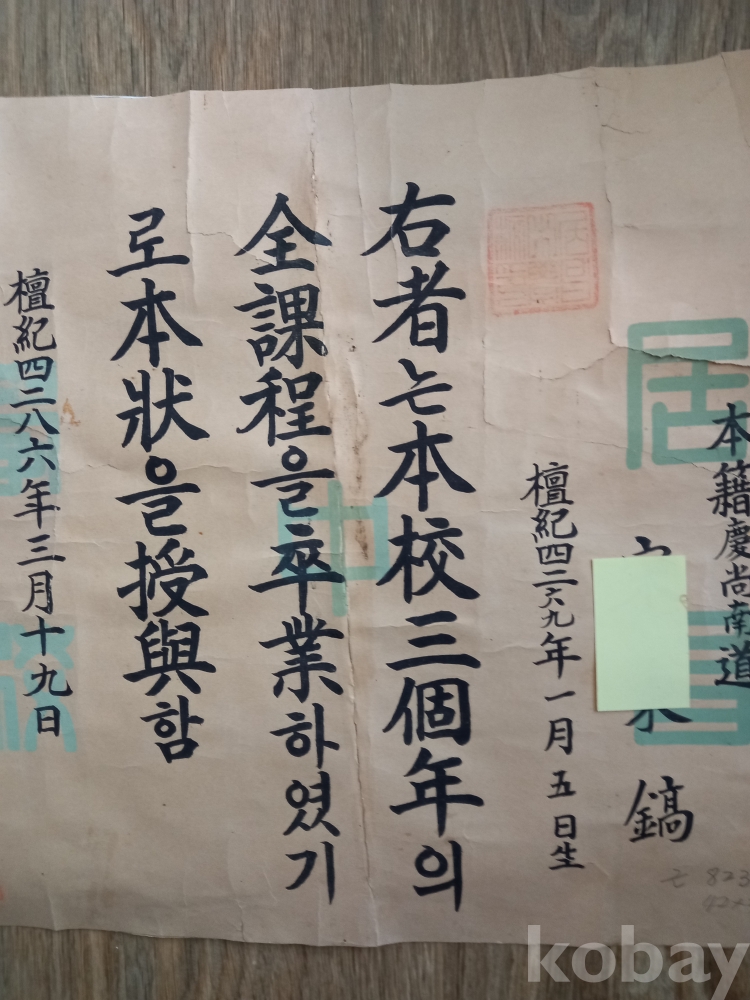 本籍慶尚南道
鎬
檀紀四二六九年一月五日生
右者는本校三個年의
全課程을卒業하였기
로本狀을授與함
檀紀四二八六年三月十九日
居昌
中
kobay